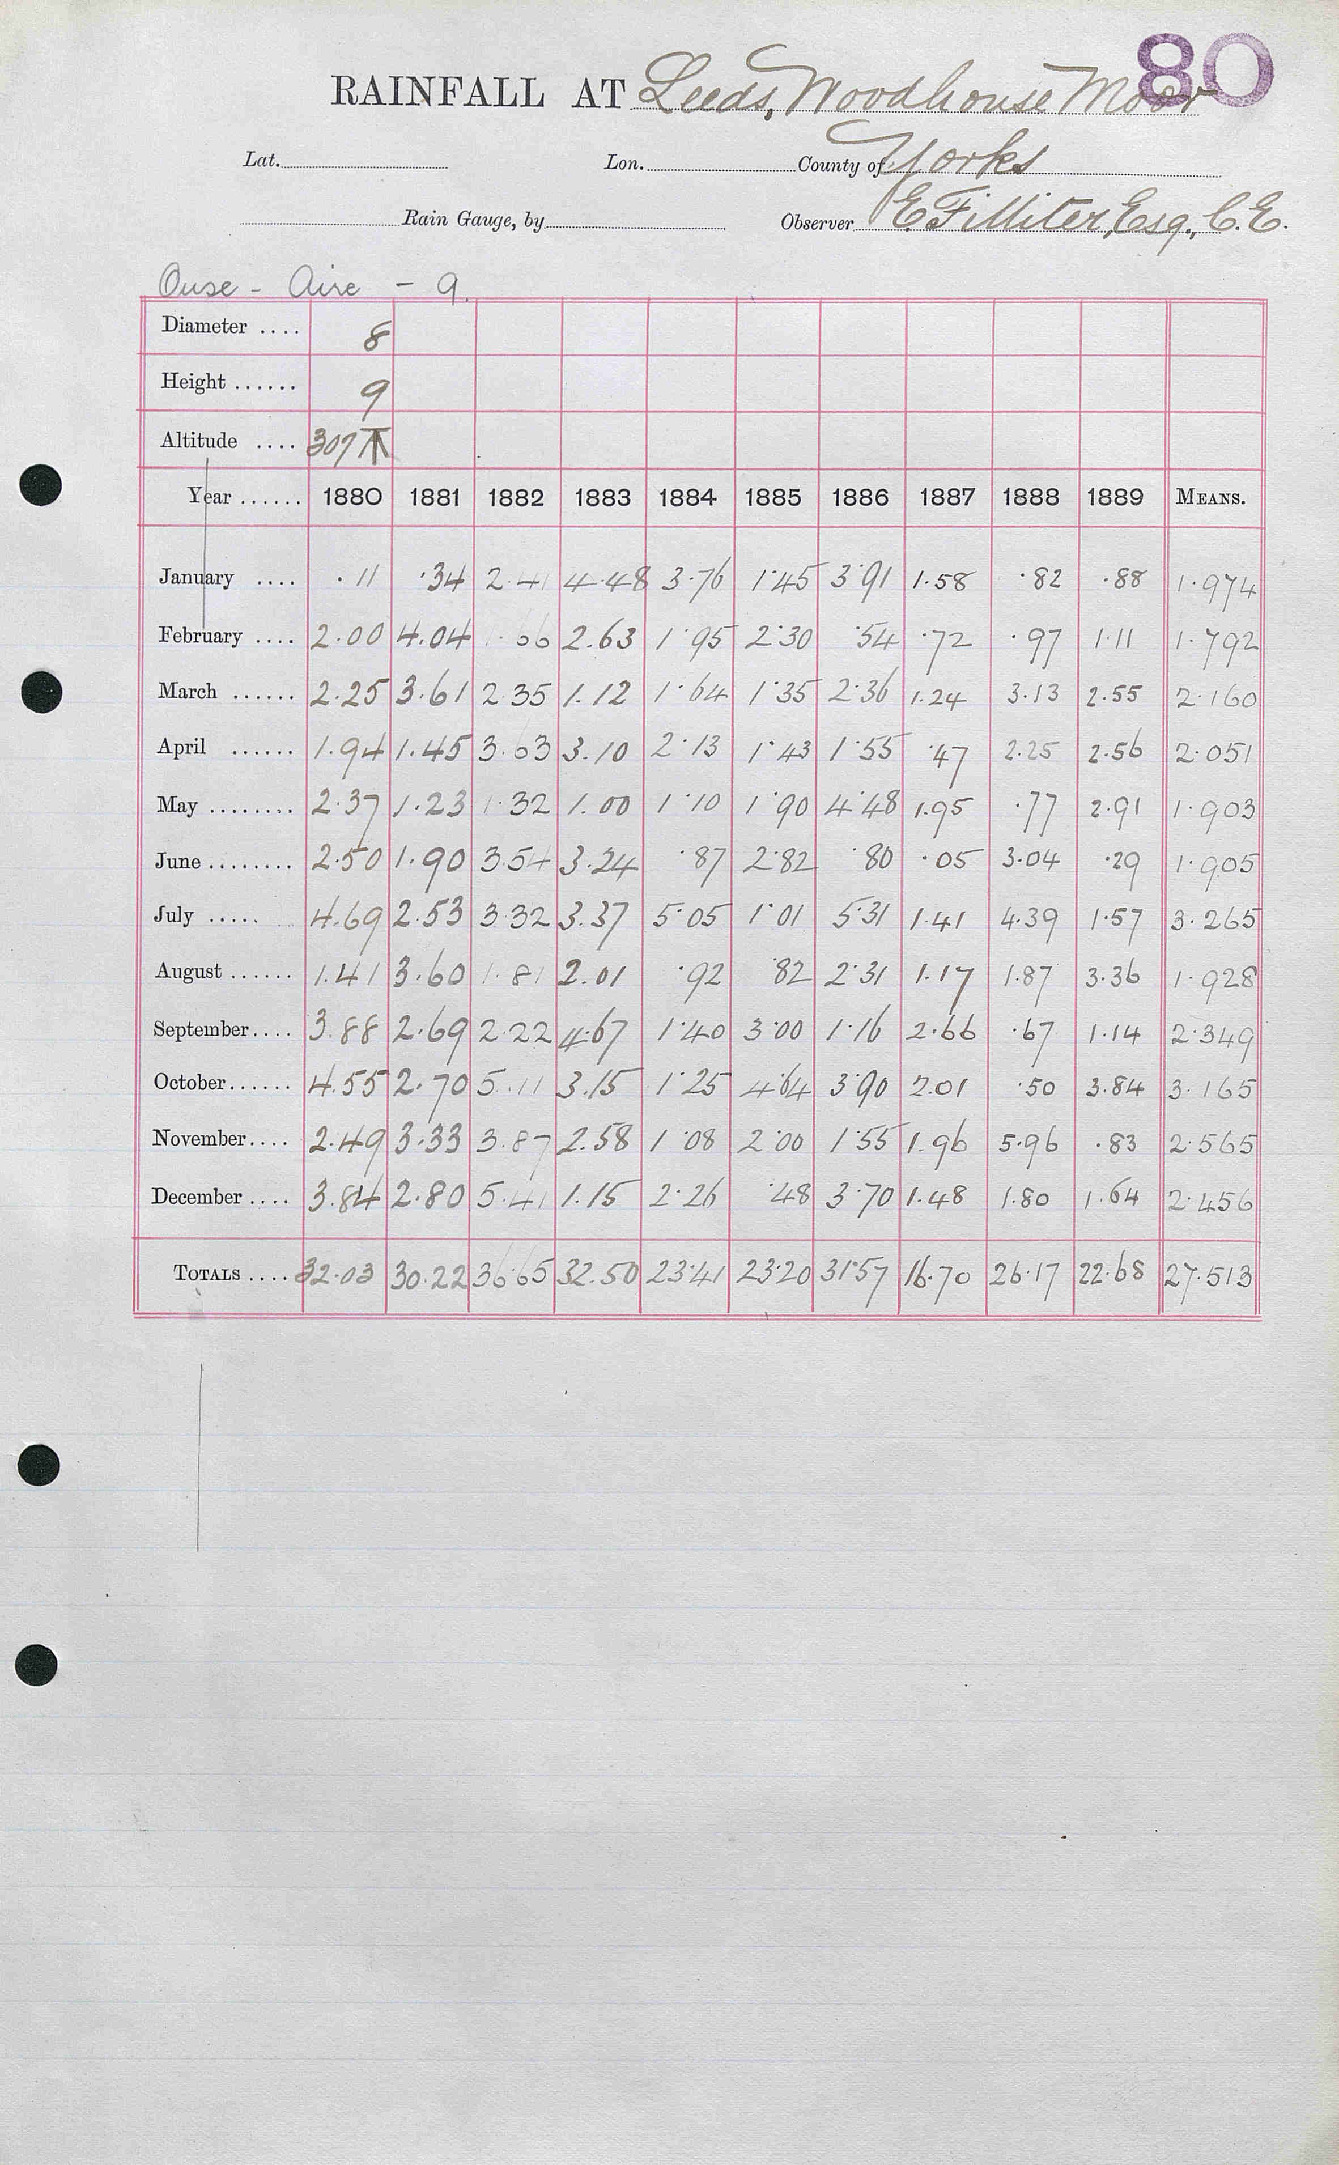 80
RAINFALL AT Leeds, Woodhouse Moor
Lat. Lon. County of Yorks
Rain Gauge, by Observer E Filliter, Esq., C.E.
Ouse - Aire - 9.
Diameter .... 8
Height ...... 9
Altitude .... 307
Year ...... 1880 1881 1882 1883 1884 1885 1886 1887 1888 1889 MEANS.
January .... .11 .34 2.41 4.48 3.76 1.45 3.91 1.58 .82 .88 1.974
February .... 2.00 4.04 1.66 2.63 1.95 2.30 .54 .72 .97 1.11 1.792
March ...... 2.25 3.61 2.35 1.12 1.64 1.35 2.36 1.24 3.13 2.55 2.160
April ...... 1.94 1.45 3.63 3.10 2.13 1.43 1.55 .47 2.25 2.56 2.051
May ........ 2.37 1.23 1.32 1.00 1.10 1.90 4.48 1.95 .77 2.91 1.903
June ........ 2.50 1.90 3.54 3.24 .87 2.82 .80 .05 3.04 .29 1.905
July ..... 4.69 2.53 3.32 3.37 5.05 1.01 5.31 1.41 4.39 1.57 3.265
August ...... 1.41 3.60 1.81 2.01 .92 .82 2.31 1.17 1.87 3.36 1.928
September.... 3.88 2.69 2.22 4.67 1.40 3.00 1.16 2.66 .67 1.14 2.349
October...... 4.55 2.70 5.11 3.15 1.25 4.64 3.90 2.01 .50 3.84 3.165
November.... 2.49 3.33 3.87 2.58 1.08 2.00 1.55 1.96 5.96 .83 2.565
December .... 3.84 2.80 5.41 1.15 2.26 .48 3.70 1.48 1.80 1.64 2.456
TOTALS .... 32.03 30.22 36.65 32.50 23.41 23.20 31.57 16.70 26.17 22.68 27.513